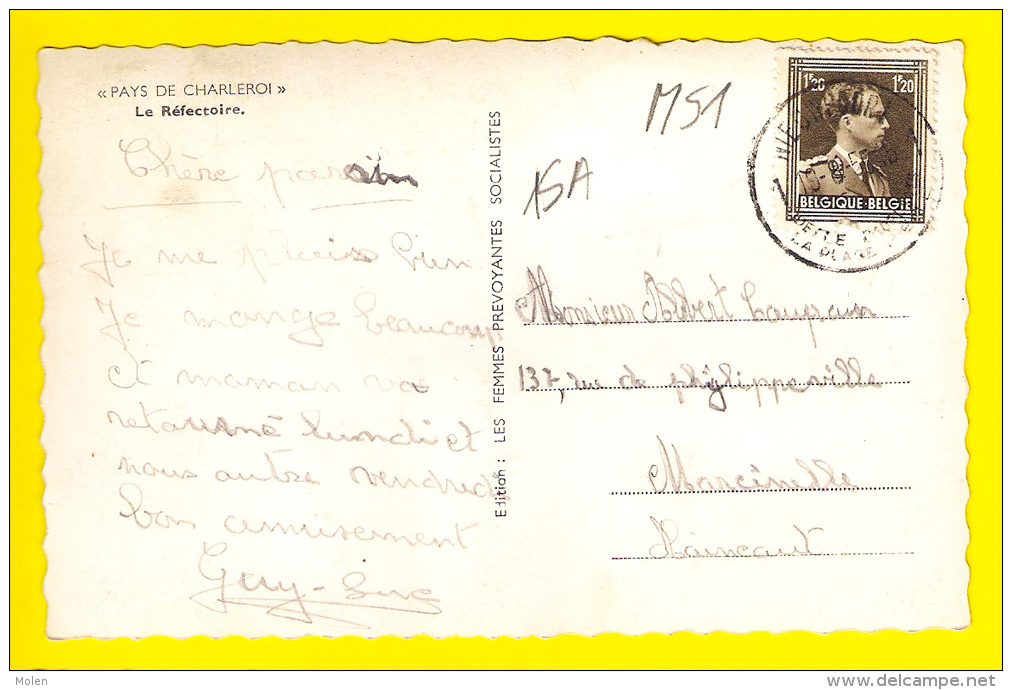 « PAYS DE CHARLEROI »
Le Réfectoire.
Chère parain
Je me plais bien
Je mange beaucoup
et maman va
retourné lundi et
nous autre vendredi
bon amusement
Guy-Luc
Edition : LES FEMMES PREVOYANTES SOCIALISTES
M51
15A
1F20 1F20
BELGIQUE-BELGIE
LA PLAGE
Monsieur Albert Laupain
137, rue de philippeville
Marcinelle
Hainaut
Molen
delcampe.net